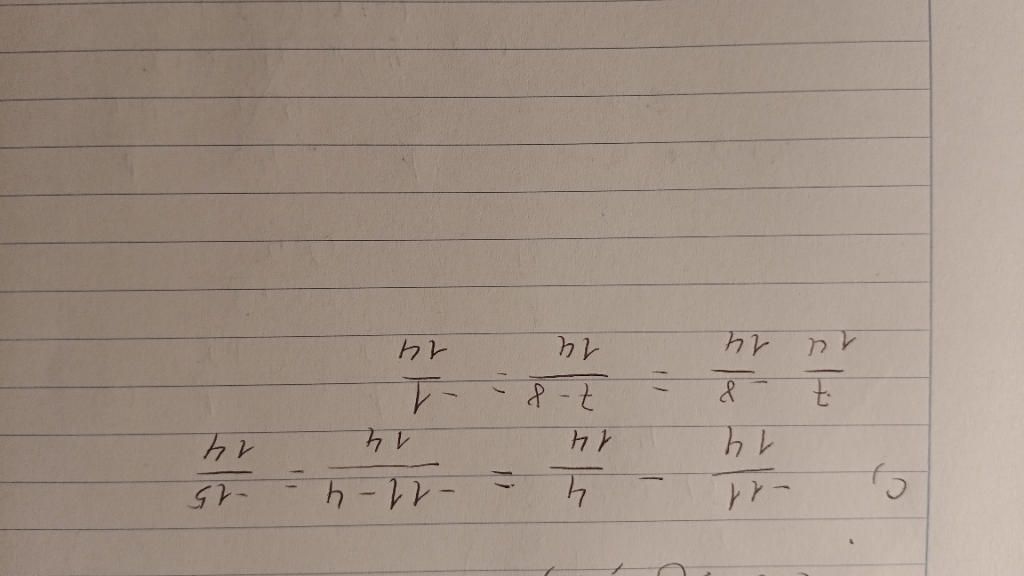 c, -11/14 - 4/14 = -11-4/14 = -15/14
7/14 - 8/14 = 7-8/14 = -1/14